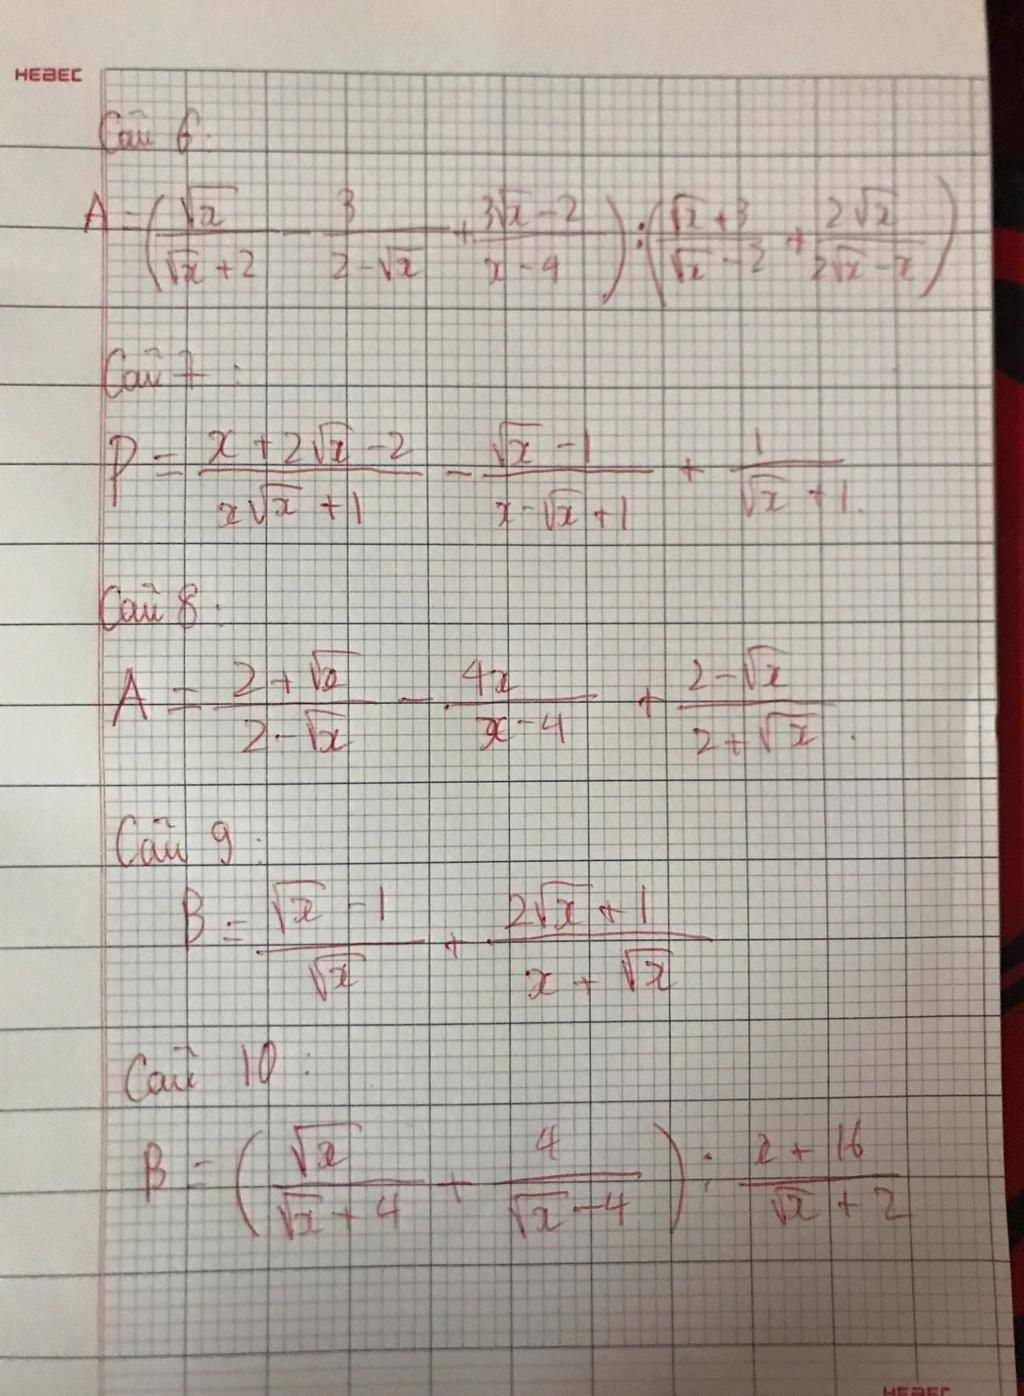 HEBEC
Câu 6:
A = (√x/(√x + 2) - 3/(2 - √x) + (3√x - 2)/(x - 4)) : ((√x + 3)/(√x - 2) + 2√x/(2√x - x))
Câu 7:
P = (x + 2√x - 2)/(x√x + 1) - (√x - 1)/(x - √x + 1) + 1/(√x + 1).
Câu 8:
A = (2 + √x)/(2 - √x) - 4x/(x - 4) + (2 - √x)/(2 + √x).
Câu 9:
B = (√x - 1)/√x + (2√x + 1)/(x + √x)
Câu 10:
B = (√x/(√x + 4) + 4/(√x - 4)) : (x + 16)/(√x + 2)
HEBEC